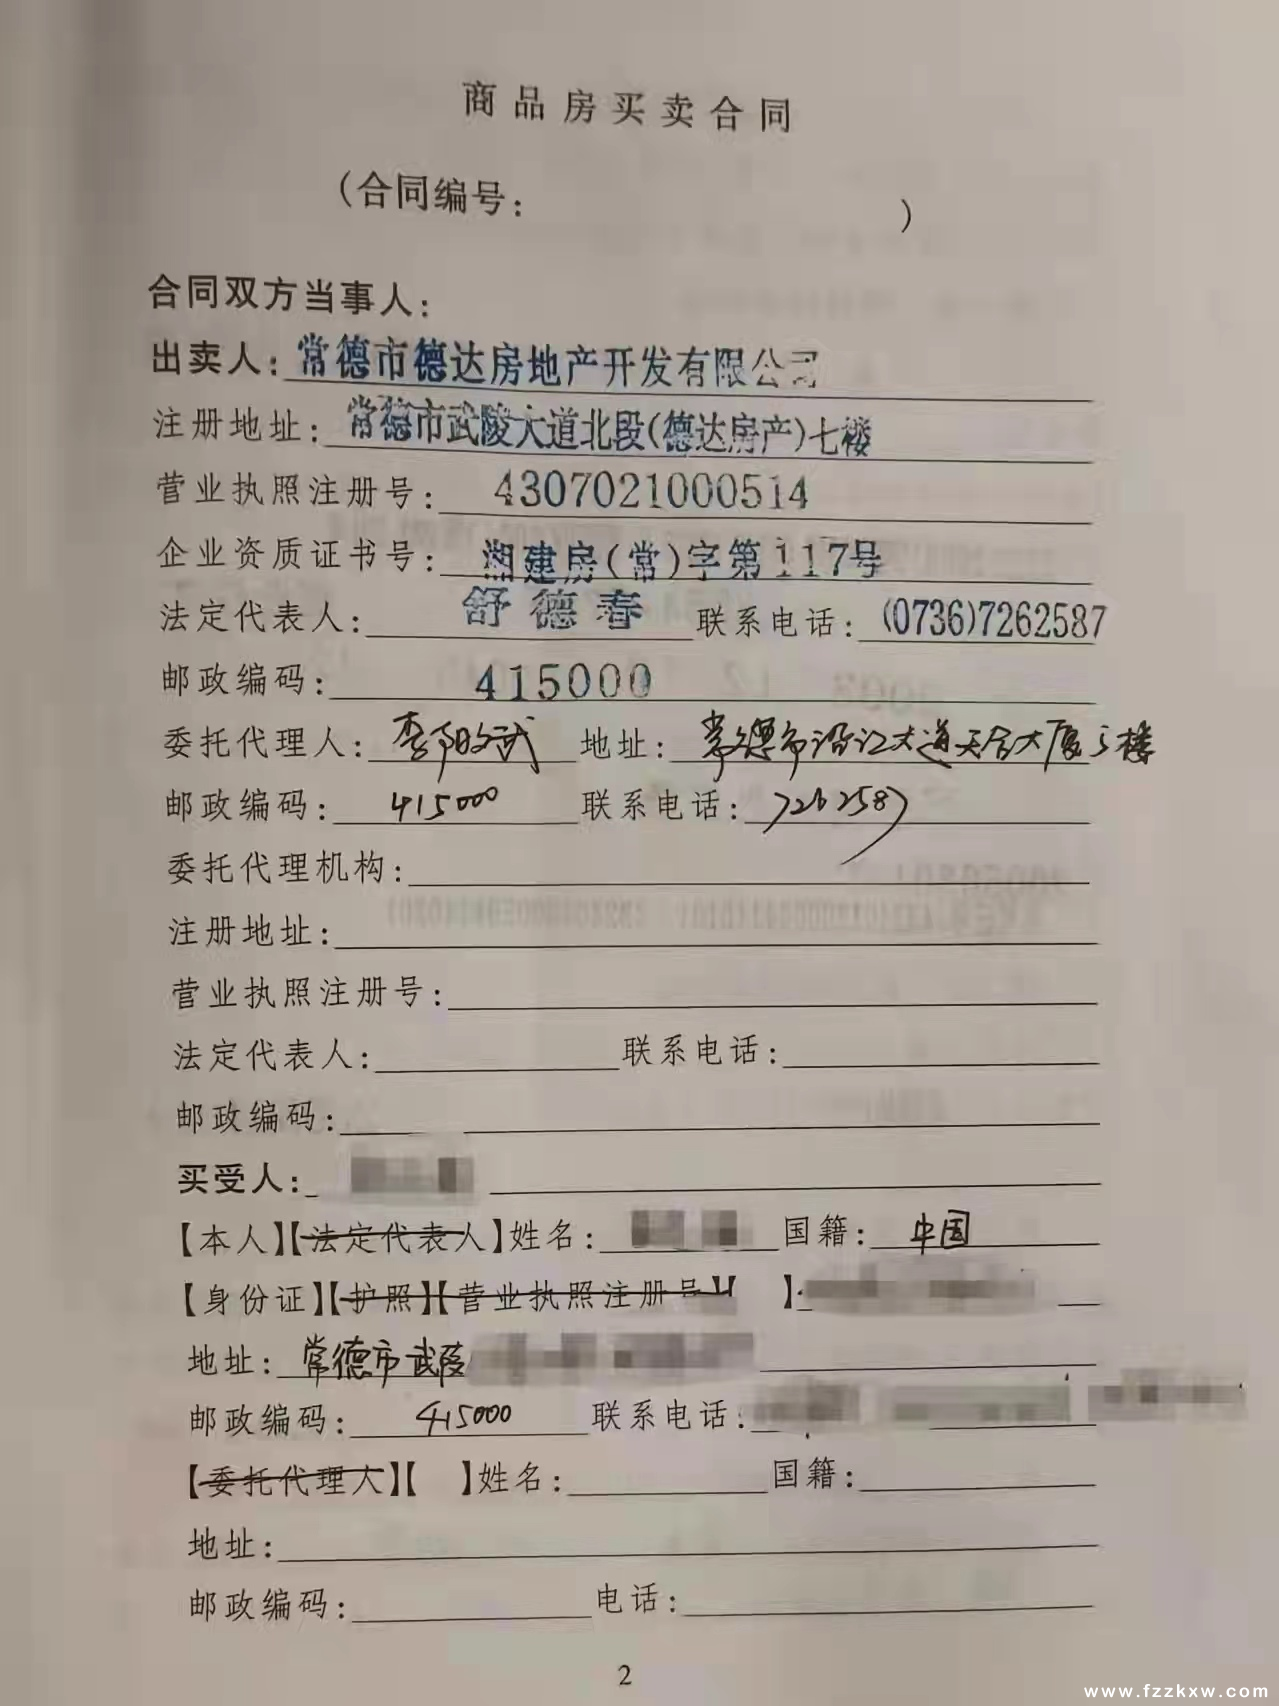 商品房买卖合同
（合同编号：　　　　）
合同双方当事人：
出卖人：常德市德达房地产开发有限公司
注册地址：常德市武陵大道北段(德达房产)七楼
营业执照注册号：4307021000514
企业资质证书号：湘建房(常)字第117号
法定代表人：舒德春 联系电话：(0736)7262587
邮政编码：415000
委托代理人：李阳武 地址：常德市沿江大道天合大厦5楼
邮政编码：415000 联系电话：7262587
委托代理机构：
注册地址：
营业执照注册号：
法定代表人： 联系电话：
邮政编码：
买受人：
【本人】【法定代表人】姓名： 国籍：中国
【身份证】【护照】【营业执照注册号】【 】
地址：常德市武陵
邮政编码：415000 联系电话：
【委托代理人】【 】姓名： 国籍：
地址：
邮政编码： 电话：
2
www.fzzkxw.com